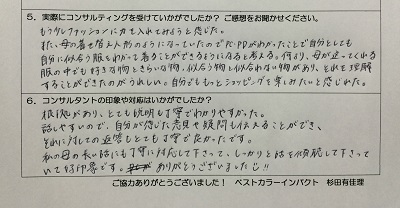 5. 実際にコンサルティングを受けていかがでしたか？ ご感想をお聞かせください。
もう少しファッションに力を入れてみようと感じた。
また、母の着せ替え人形のようになっていたので、PDがわかったことで自分としても
自分に似合う服をわかって着ることができるようになると考える。何より、母が送ってくれる
服の中でも好きな物ときらいな物、似合う物と似合わない物があり、それを理解
することができたのがうれしい。自分でももっとショッピングを楽しみたいと感じれた。
6. コンサルタントの印象や対応はいかがでしたか？
根拠があり、とても説明も丁寧でわかりやすかった。
話しやすいので、自分が感じた意見や疑問も伝えることができ、
それに対しての返答もとても丁寧で良かったです。
私の母の長い話にも丁寧に対応して下さって、しっかりと話を傾聴して下さって
いて好印象です。ありがとうございました
ご協力ありがとうございました！ ベストカラーインパクト 杉田有佳理